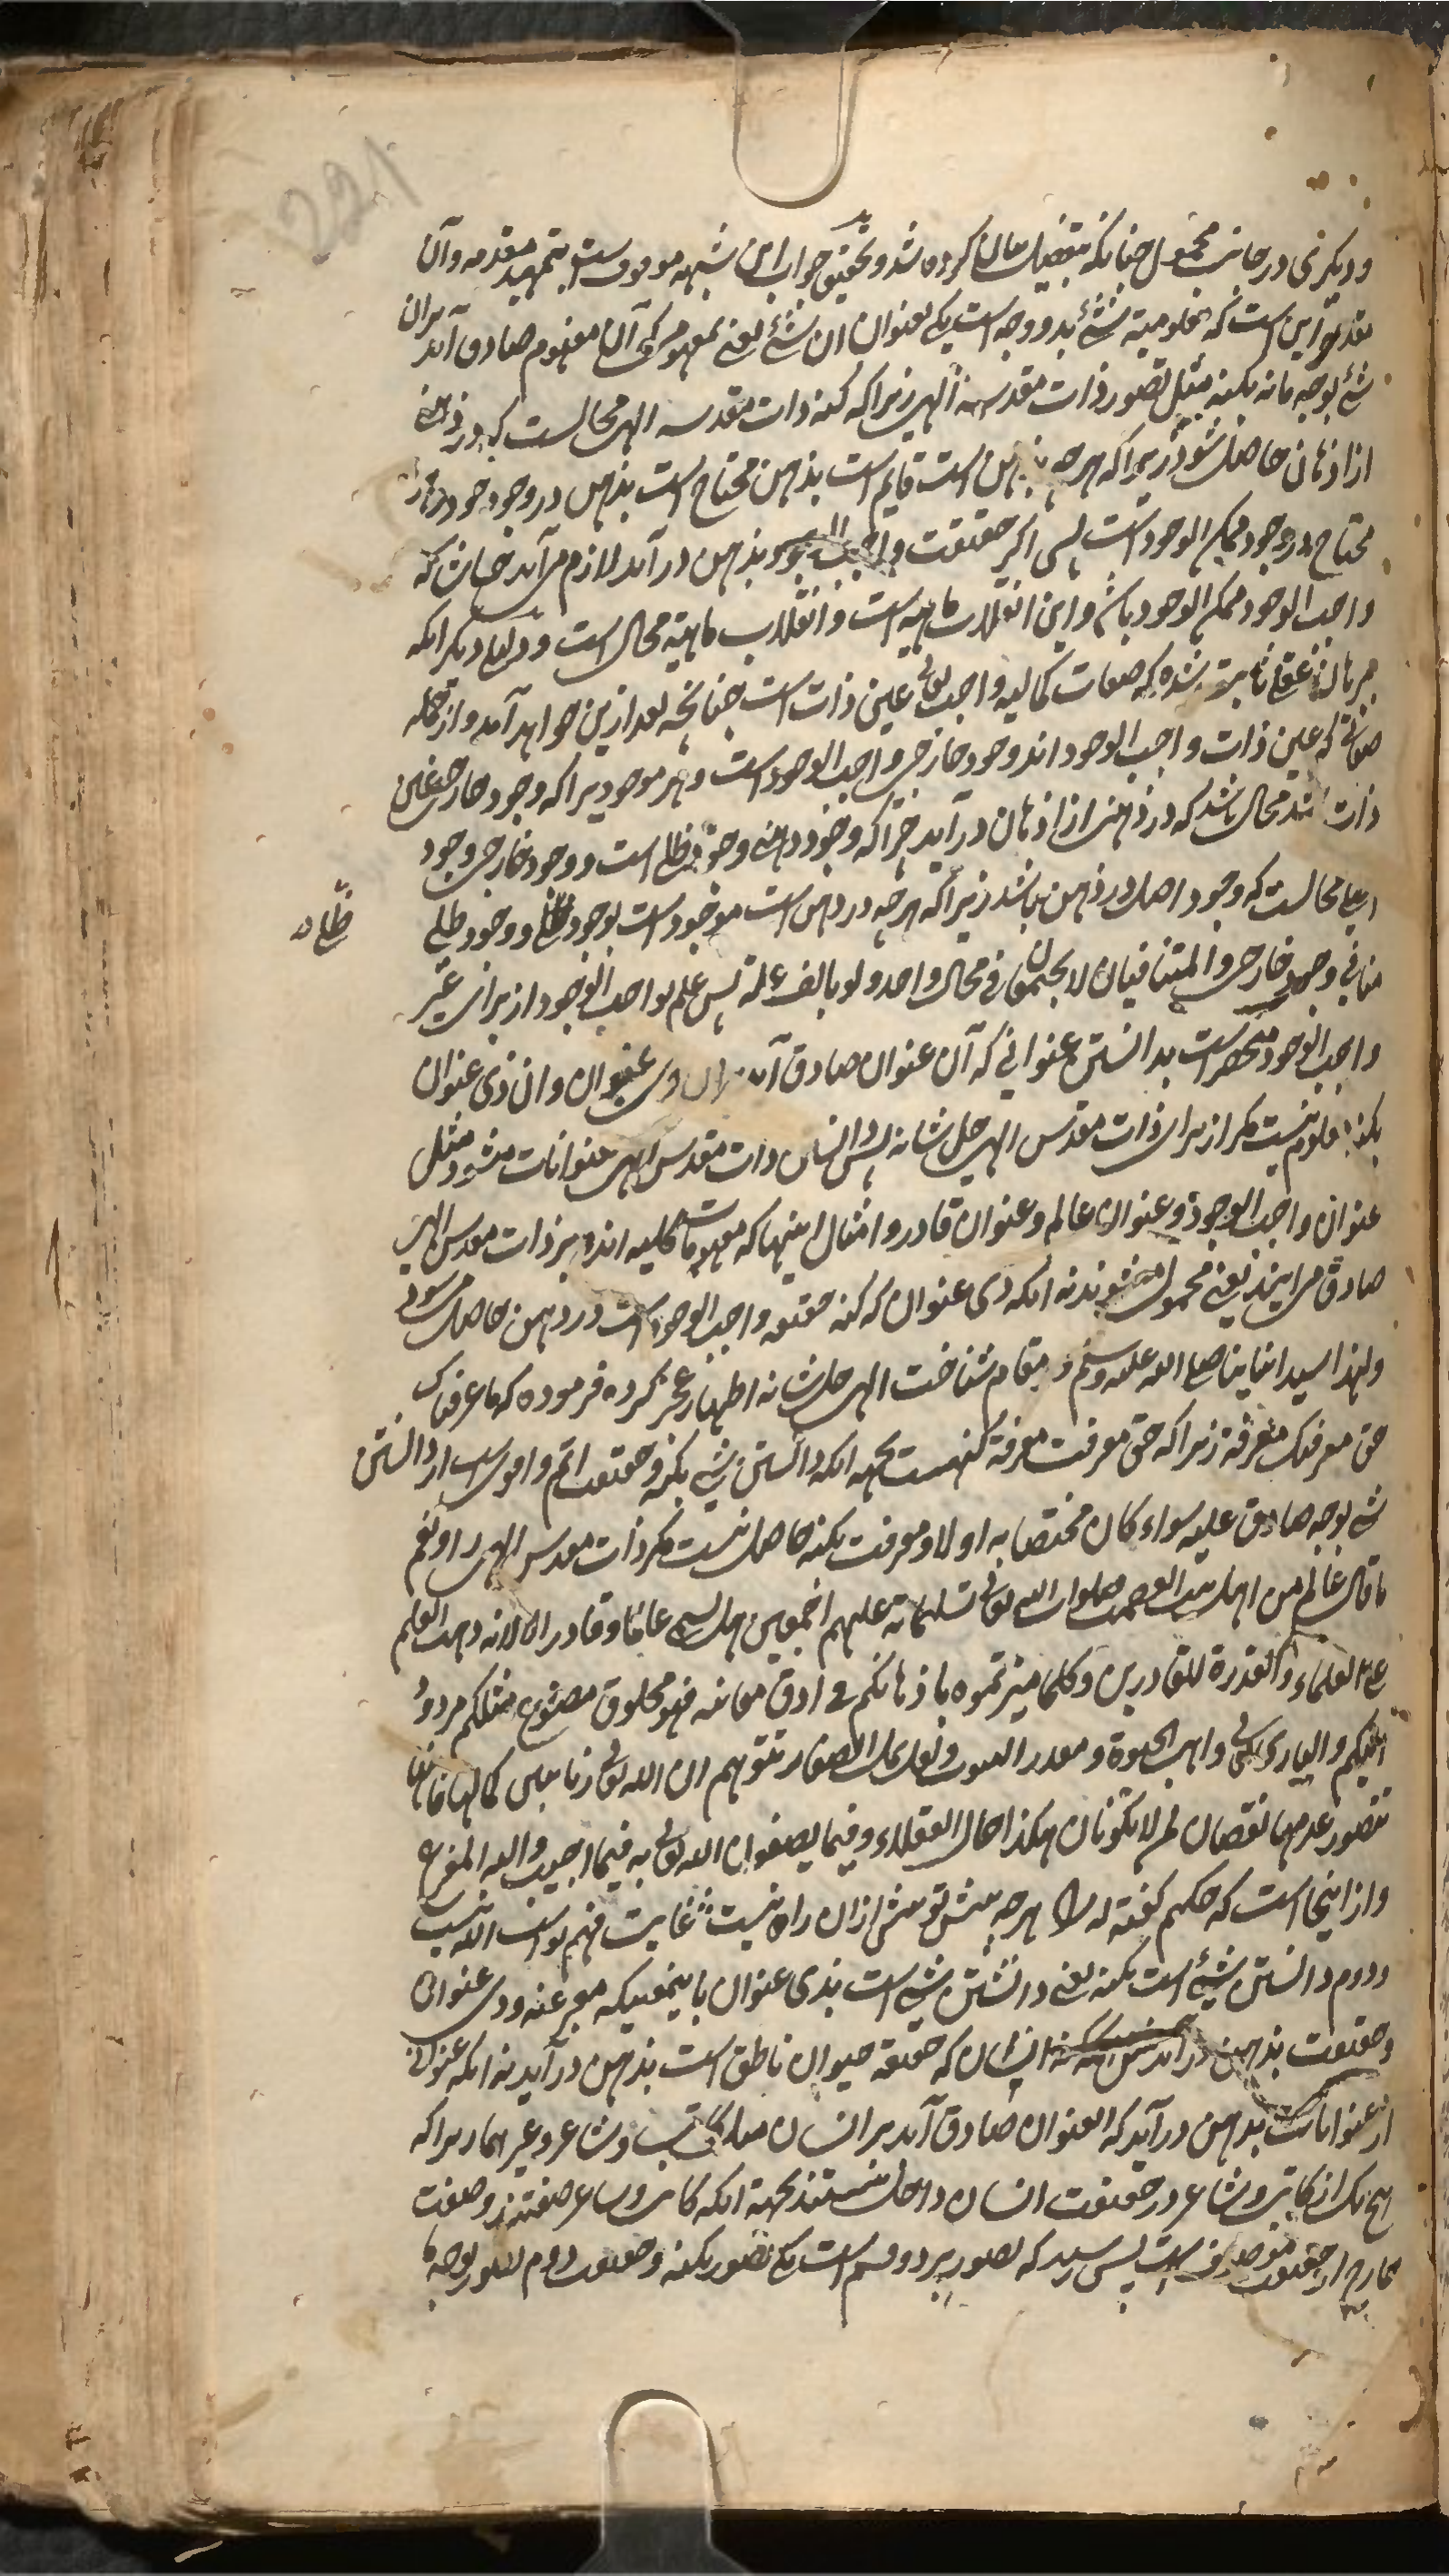 221
ودیگری در جانب محمول چنانکه بتفصیل بیان کرده شد و تحقیق جواب این شبهه موقوفست بتمهید مقدمه و آن
مقدمه این است که معلومیة شئ بدو وجه است یکی بعنوان ان شئ یعنی بمفهومی که آن مفهوم صادق آید بران
شئ بوجه ما نه بکنه مثل تصور ذات مقدسه الهی زیرا که کنه ذات مقدسه الهی محالست که در ذهنی
از اذهان حاصل شود زیرا که هرچه بذهن است قایم است بذهن محتاج است بذهن در وجود خود و هرچه
محتاج در وجود ممکن الوجود است پس اگر حقیقت واجب الوجود بذهن در آید لازم می آید چنان که
واجب الوجود ممکن الوجود باشد و این انقلاب ماهیة است و انقلاب ماهیة محال است و دلیل دیگر انکه
ببرهان عقلی ثابت شده که صفات کمالیه واجب تعالی عین ذات است چنانچه بعد ازین خواهد آمد و از جمله
صفاتی که عین ذات واجب الوجود اند وجود خارجی واجب الوجود است و هر موجودیرا که وجود خارجی عین
ذات باشد محال باشد که در ذهنی از اذهان در آید چرا که وجود ذهنی وجود ظلی است و وجود خارجی وجود
اصلی محالست که وجود اصلی در ذهن باشد زیرا که هرچه در ذهن است موجود است بوجود ظلی و وجود ظلی
ظلی
منافی وجود خارجی والمتنافیان لا یجتمعان فی محال واحد ولو بالف علة پس علم بواجب الوجود از برای غیر
واجب الوجود منحصر است بدانستن عنوانی که آن عنوان صادق آید بران ذی عنوان و ان ذی عنوان
بکنه معلوم نیست مگر از برای ذات مقدس الهی جل شانه پس دانستن ذات مقدس الهی بعنوانات میشود مثل
عنوان واجب الوجود و عنوان عالم و عنوان قادر و امثال اینها که مفهومات کلیه اند و بر ذات مقدس الهی
صادق می ایند یعنی محمول میشوند نه انکه ذی عنوان که کنه حقیقه واجب الوجود است در ذهن حاصل میشود
ولهذا سید انبیا صلی الله علیه وسلم در مقام شناخت الهی جل شانه اظهار عجز کرده فرموده که ما عرفناک
حق معرفتک معرفة زیرا که حق معرفت معرفة کنهست بجهة انکه دانستن شئ بکنه و حقیقت اتم و اقوی است از دانستن
شئ بوجه صادق علیه سواء کان مختصا به او لا و معرفت بکنه حاصل نیست مگر ذات مقدس الهی را و نعم
ما قال عالم من اهل بیت العصمة صلوات الله تعالی وتسلیماته علیهم اجمعین هل یسمی عالما وقادرا الا لانه وهب العلم
للعلماء والقدرة للقادرین وکلما میزتموه باذهانکم فی ادق معانیه فهو مخلوق مصنوع مثلکم مردود
الیکم والباری تعالی واهب الحیوة ومقدر الموت ولعل النمل الصغار تتوهم ان الله تعالی زبانیتین کمالها فانها
تتصور عدمهما نقصان لمن لا یکونان هکذا حال العقلاء فیما یصفون الله تعالی به فیما احسب والله المفزع
و از اینجا است که حکیم گفته هرچه پیش تو پیش ازان راه نیست غایت فهم تو است الله نیست
ودوم دانستن شئ است بکنه یعنی دانستن شئ است بذی عنوان باینمعنیکه معبر عنه و ذی عنوان
و حقیقت بذهن در آید انسان که حقیقة حیوان ناطق است بذهن در آید نه انکه عنوانی
از عنوانات بذهن در آید که العنوان صادق آید بر انسان مثل کاتب و شاعر و غیرهما زیرا که
هیچ یک از کاتب و شاعر در حقیقت انسان داخل نیستند بجهة انکه کاتب و شاعر صفتند و صفت
خارج از حقیقت موصوفست پس رسید که تصور بر دو قسم است یکی تصور بکنه و حقیقت دوم تصور بوجه ما